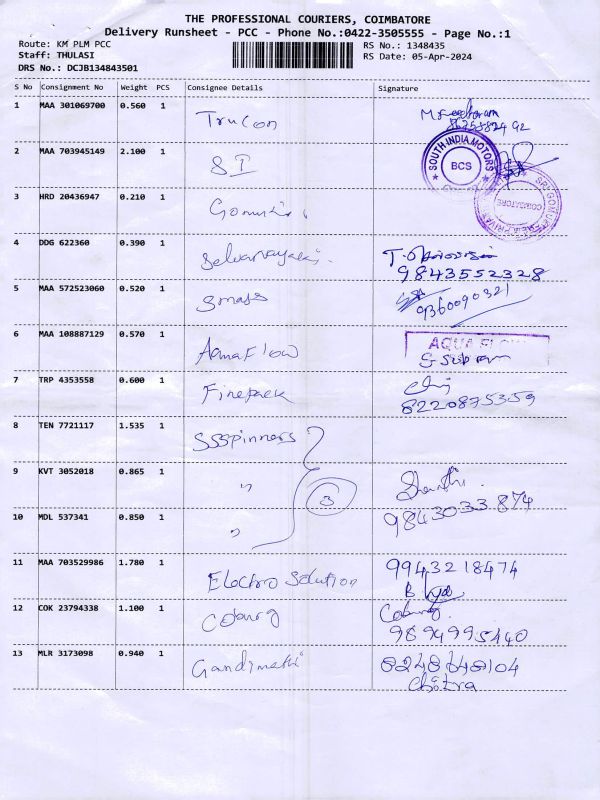 THE PROFESSIONAL COURIERS, COIMBATORE
Delivery Runsheet - PCC - Phone No.:0422-3505555 - Page No.:1
Route: KM PLM PCC
RS No.: 1348435
Staff: THULASI
RS Date: 05-Apr-2024
DRS No.: DCJB134843501
S No Consignment No Weight PCS Consignee Details Signature
1 MAA 301069700 0.560 1 Trucon
2 MAA 703945149 2.100 1 S I
SOUTH INDIA MOTORS
BCS
3 HRD 20436947 0.210 1
COIMBATORE
4 DDG 622360 0.390 1 Selvanayaki
9843552328
5 MAA 572523060 0.520 1 Smags
9360090321
6 MAA 108887129 0.570 1 Aquaflow
AQUA FLOW
7 TRP 4353558 0.600 1 Finepack
8220875359
8 TEN 7721117 1.535 1 SSSpinners
9 KVT 3052018 0.865 1 " 3
Shanthi
10 MDL 537341 0.850 1 "
9843033874
11 MAA 703529986 1.780 1 Electro Solution 9943218474
12 COK 23794338 1.100 1 Coburg Coburg
9894995440
13 MLR 3173098 0.940 1 Gandimathi 8248648104
Chitra